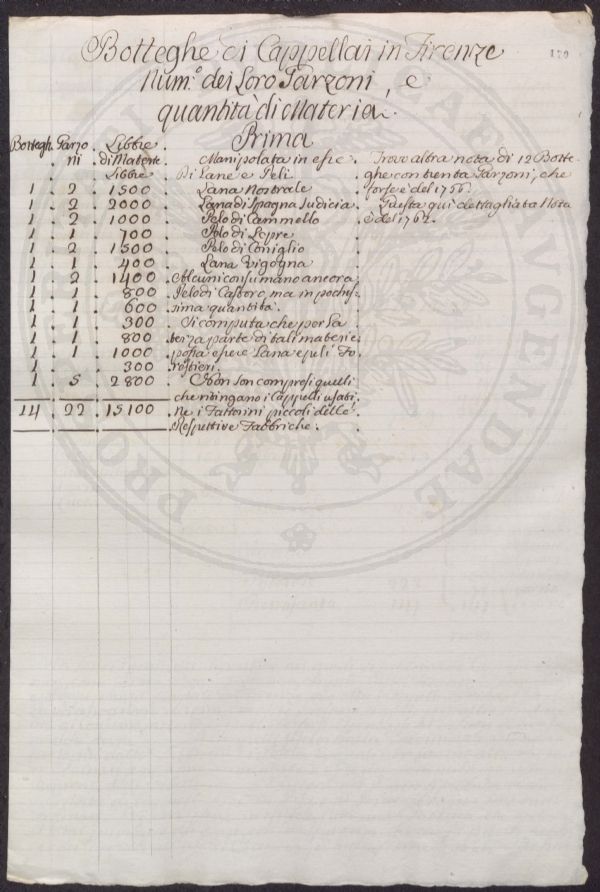 170
Botteghe di Cappellai in Firenze
Num.º dei Loro Garzoni, e
quantità di Materia
Prima
Bottegh. Garzo Libbre
ni di Materie Manipolata in essere Trovo altra nota di 12 Botte-
Libbre Di Lane e Peli. ghe con trenta Garzoni, che
1 2 1500 Lana Nostrale forse è del 1756.
1 2 2000 Lana di Spagna Sudicia Questa qui dettagliata Nota
1 2 1000 Pelo di Cammello è del 1762.
1 1 700 Pelo di Lepre
1 2 1500 Pelo di Coniglio
1 1 400 Lana Vigogna
1 2 1400 Alcuni consumano ancora
1 1 800 Pelo di Castoro, ma in pochis-
1 1 600 sima quantità.
1 1 300 Si computa che per la
1 1 800 terza parte di tali materie
1 1 1000 possa essere Lana e peli Fo-
1 . 300 restieri.
1 5 2800 Non son compresi quelli
che ritingano i Cappelli usati
14 22 15100 Ne i Fattorini piccoli delle
Respettive Fabbriche.
PRO AUGENDAE